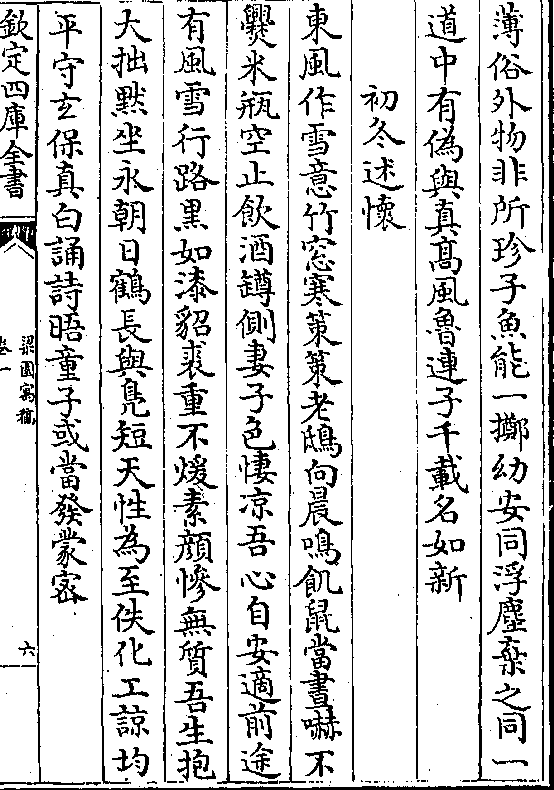 薄俗外物非所珍子魚能一擲幼安同浮塵棄之同一
道中有偽與真髙風魯連子千載名如新
初冬述懷
東風作雪意竹窓寒策策老鴟向晨鳴飢鼠當晝嚇不
爨米瓶空止飲酒罇側妻子色悽凉吾心自安適前途
有風雪行路黒如漆貂裘重不煖素顔慘無質吾生抱
大拙黙坐永朝日鶴長與鳬短天性為至佚化工諒均
平守玄保真白誦詩晤童子或當發蒙宻
欽定四庫全書
梁園寓稿
卷一
六